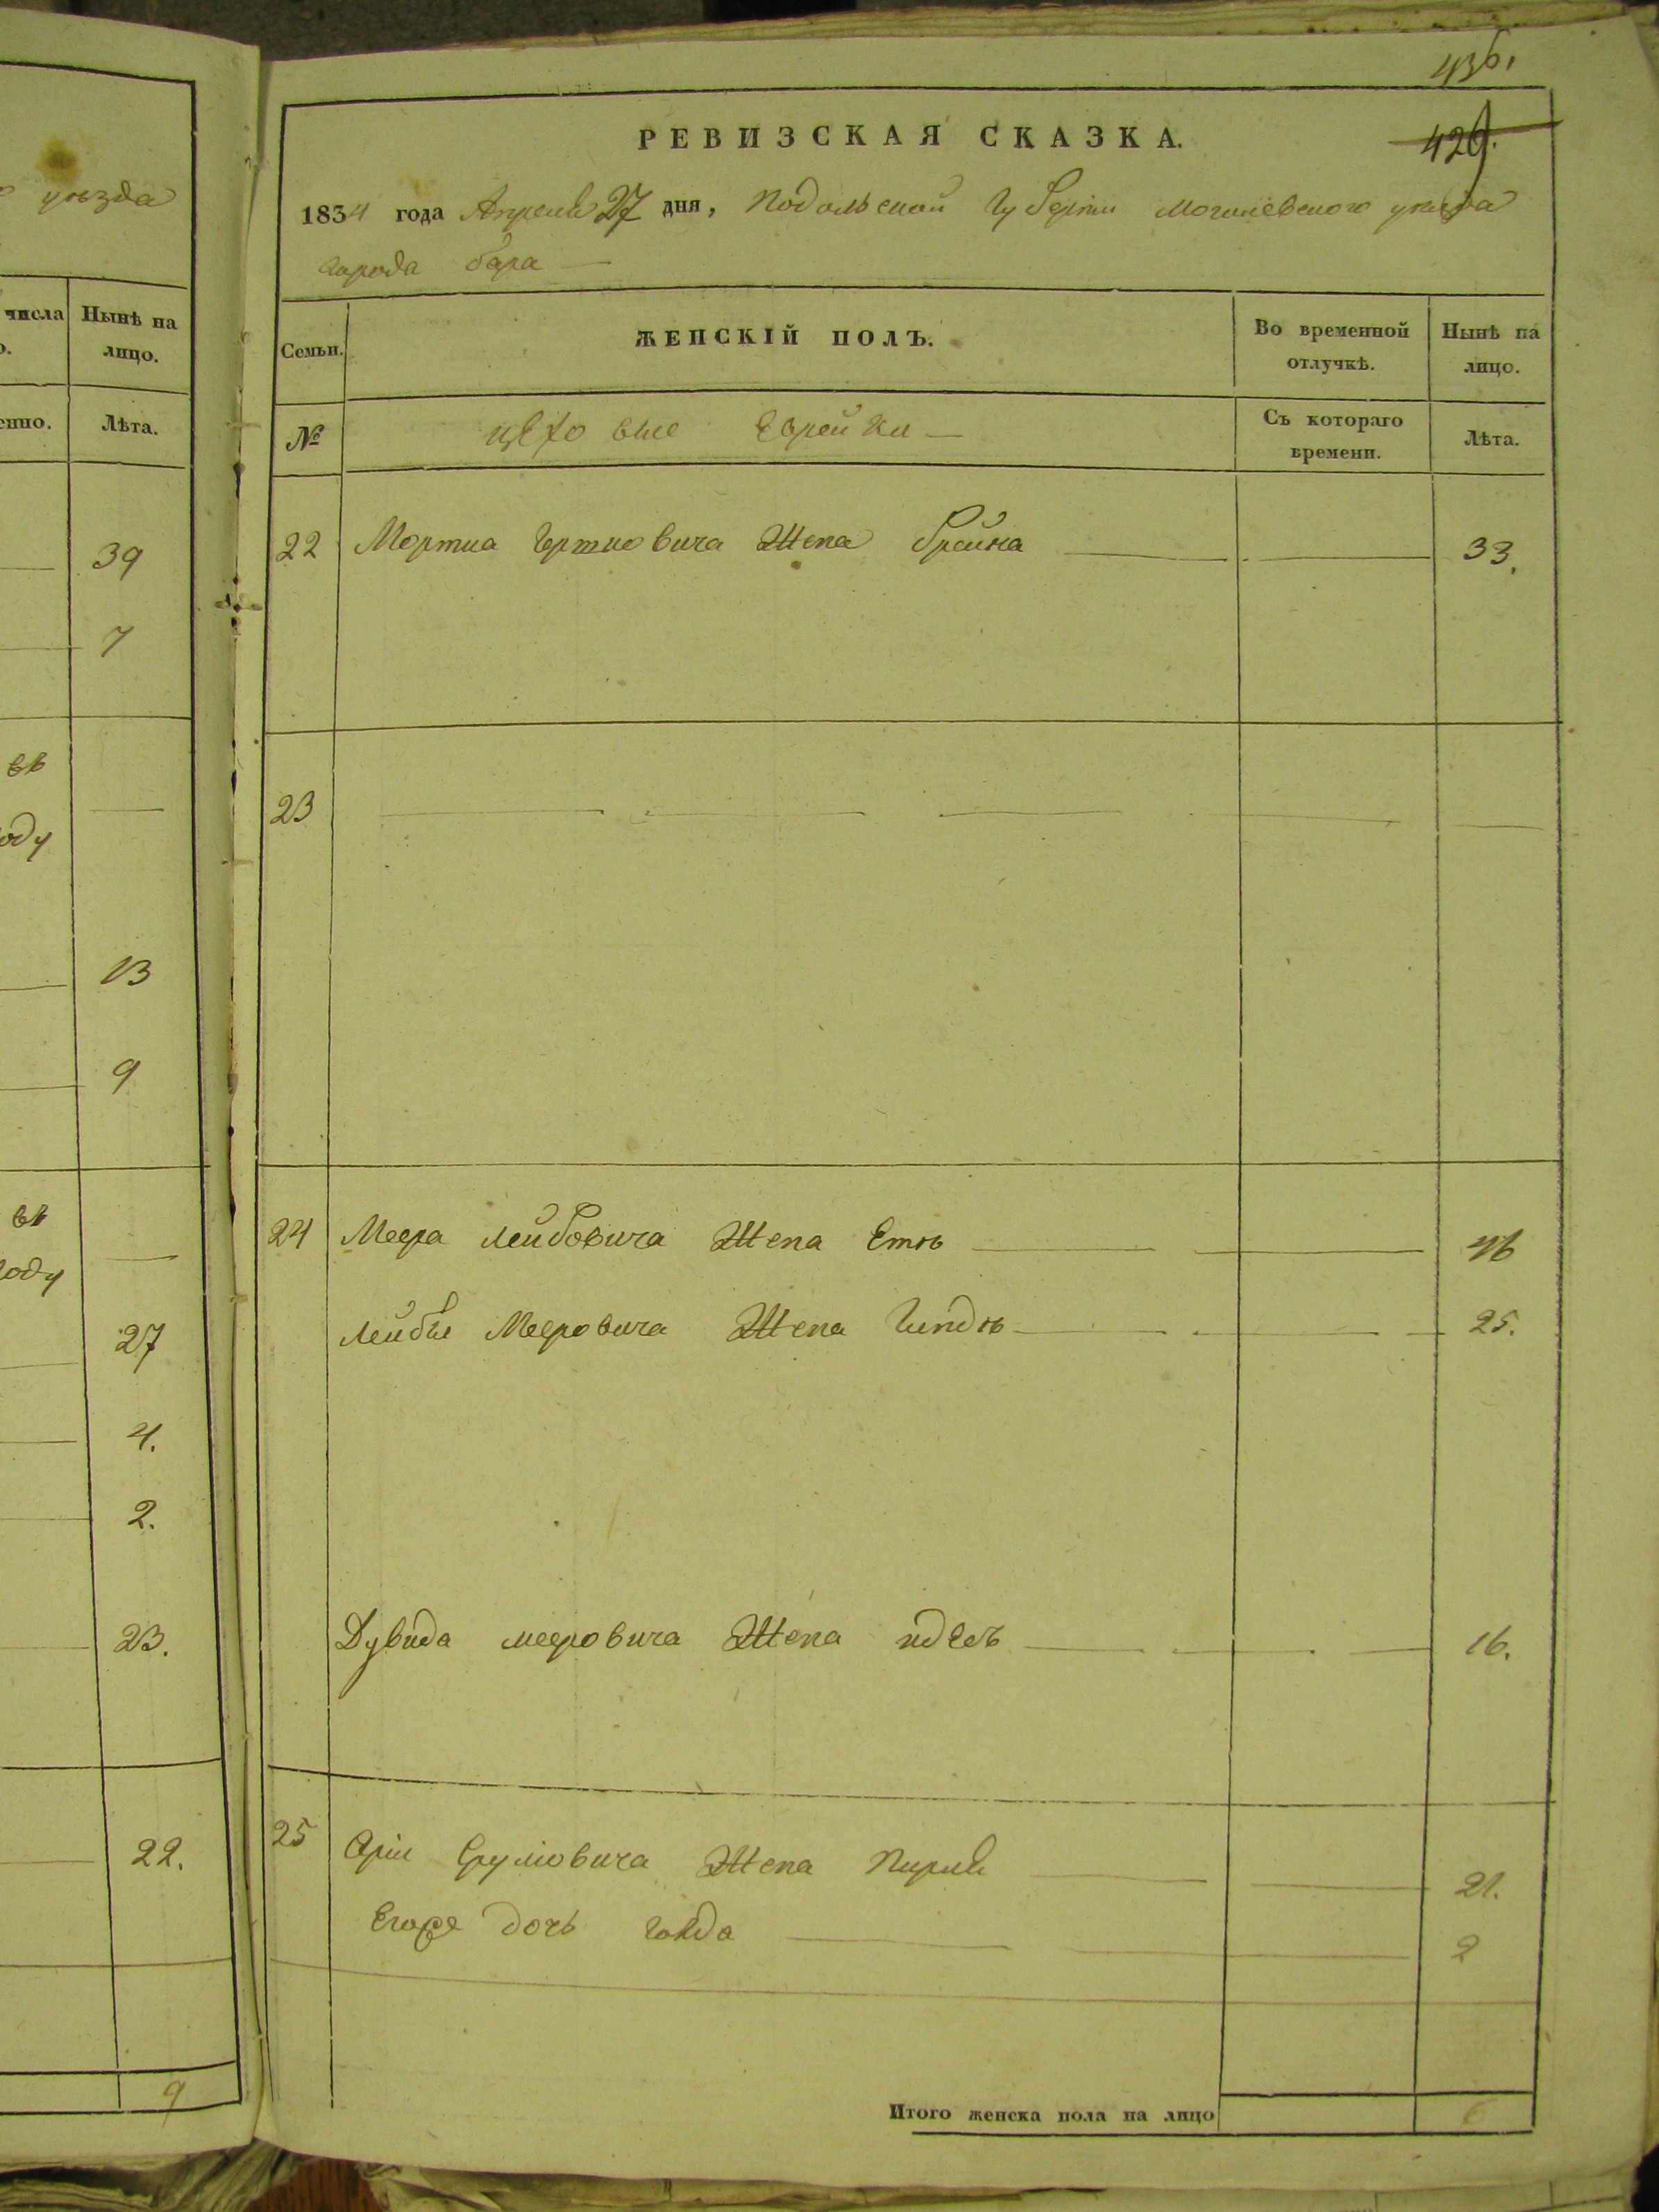 уѣзда
числа
Нынѣ на
лицо.
Лѣта.
39
7
въ
оду
13
9
въ
году
27
4.
2.
23.
22.
9
436.
РЕВИЗСКАЯ СКАЗКА.
429.
1834 года Апреля 27 дня, Подольской Губернии Могилевского уезда
города бара —
Семьи.
ЖЕНСКІЙ ПОЛЪ.
Во временной
отлучкѣ.
Нынѣ на
лицо.
№
цеховые Еврейки —
Съ котораго
времени.
Лѣта.
22 Мортка Гершковича Жена Брайна 33.
23
24 Меера Лейбовича Жена Еть 46
Лейбы Мееровича Жена Гиндъ 25.
Дувида мееровича Жена 16.
25 Срулiовича Жена Перля 21.
Егоже дочь Голда 2
Итого женска пола на лицо 6